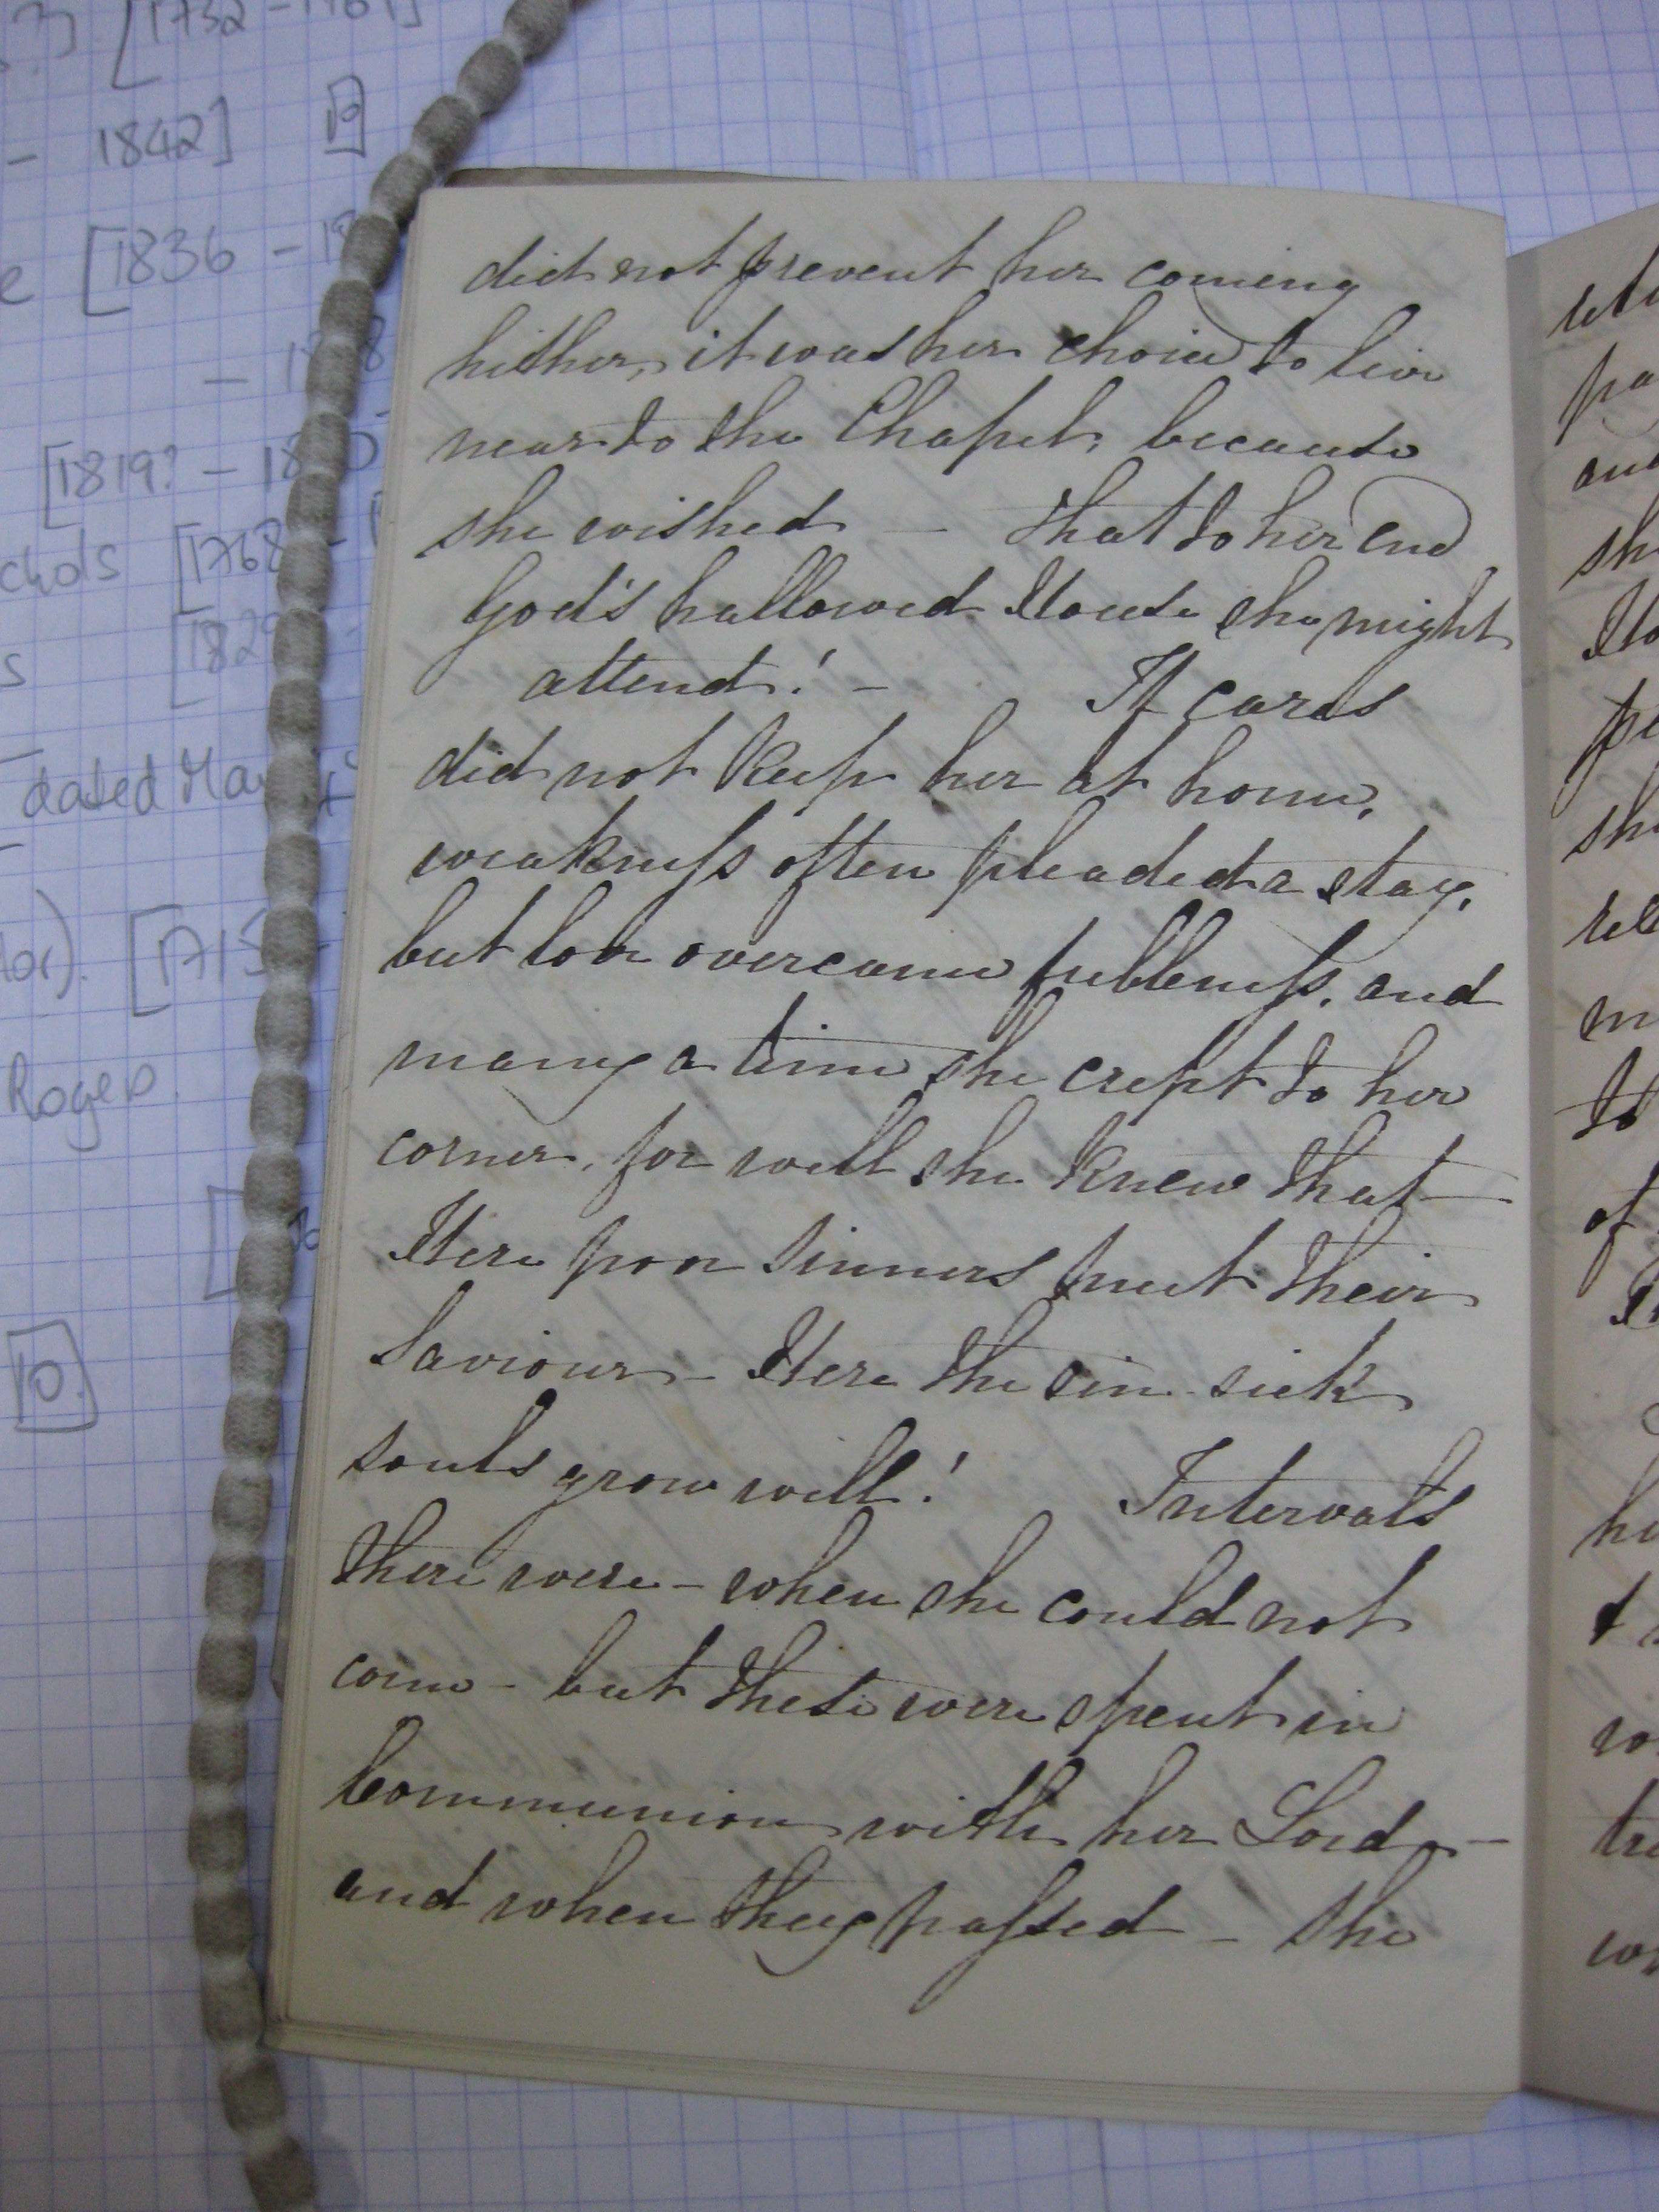 ? ] [1732 - 1761]
- 1842] 10
e [1836 - 18
- 18 8
[1819? - 18 0
chols [1768 -
s [182
dated Ma
tor). [1715
Roger
10.
did not prevent her coming
hither, it was her choice to live
near to the Chapel, because
she wished — that to her end
God's hallowed House she might
attend! — If cares
did not keep her at home,
weakness often pleaded a stay,
but love overcame feebleness, and
many a time she crept to her
corner, for well she knew that
Here poor sinners meet their
Saviour - Here the sin-sick
souls grow well! Intervals
there were - when she could not
come - but these were spent in
Communion with her Lord -
and when they passed - she
pa
sh
Ho
pe
sh
m
to
of
he
wo